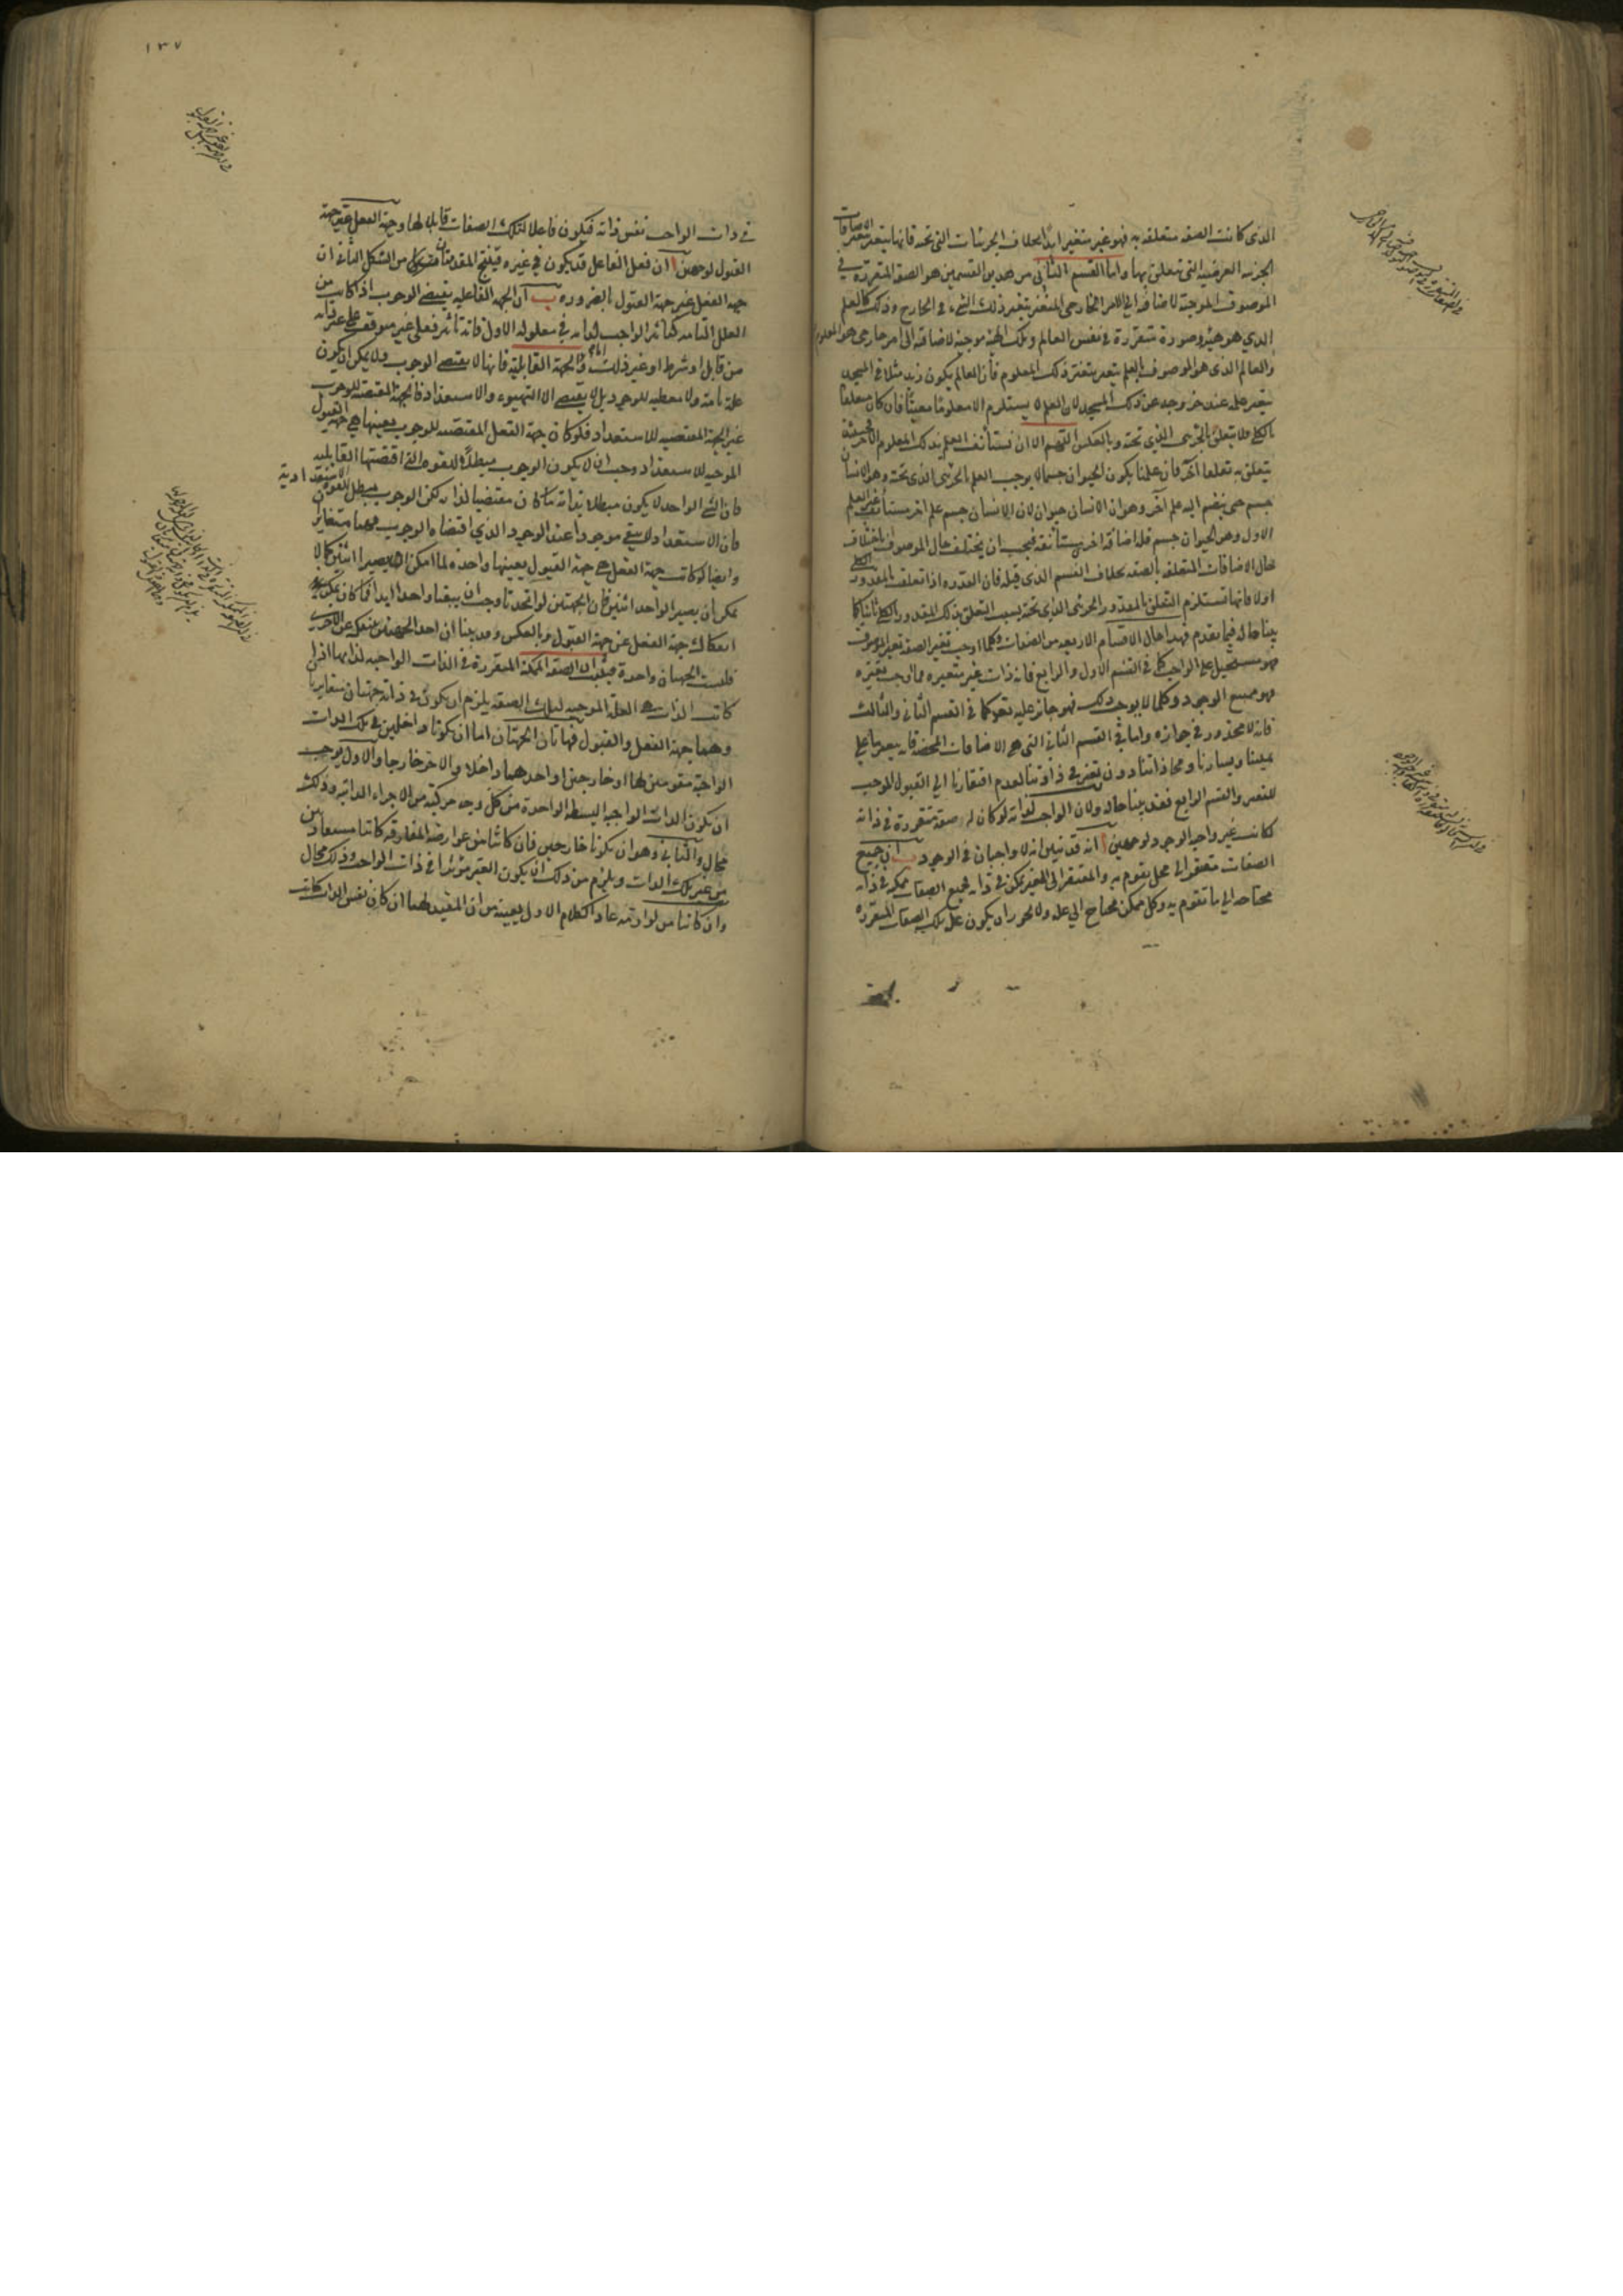 الذى كانت الصفة متعلقة به فهو غير متغير ابدا بخلاف الجزئيات التى تحته فانها يتغير بتغيرها الاضافات
الجزئية العرضية التى تتعلق بها واما القسم الثانى من هذين القسمين هو الصفة المتقررة فى
الموصوف الموجبة لاضافته الى الامر الخارجى المتغير بتغير ذلك الشىء فى الخارج وذلك كالعلم
الذى هو هيئة وصورة متقررة فى نفس العالم وتلك الهيئة موجبة لاضافته الى امر خارجى هو المعلوم
والعالم الذى هو الموصوف بالعلم يتغير بتغير ذلك المعلوم فان العالم بكون زيد مثلا فى المسجد
يتغير علمه عند خروجه عن ذلك المسجد لان العلم يستلزم الا معلوما معينا فان كان متعلقا
بالكلى فلا يتعلق بالجزئى الذى تحته وبالعكس اللهم الا ان نستأنف العلم بذلك المعلوم
يتعلق به تعلقا آخر فان علمنا بكون الحيوان جسما لا يوجب العلم بالجزئى الذى تحته وهو الانسان
جسم حتى ينضم اليه علم آخر وهو ان الانسان حيوان لان الانسان جسم علم اخر مستأنف غير العلم
الاول وهو الحيوان جسم فله اضافة اخرى مستأنفة فيجب ان يختلف حال الموصوف باختلاف
حال الاضافات المتعلقة بالصفة بخلاف القسم الذى قبله فان القدرة اذا تعلقت بالمقدور الكلى
اولا فانها تستلزم التعلق بالمقدور الجزئى الذى تحته بسبب التعلق بذلك المقدور الكلى ثانيا كما
بينا حاله فيما تقدم فهذا حال الاقسام الاربعة من الصفات وكلما اوجب تغير الصفة تغير الموصوف
فهو مستحيل على الواجب كما فى القسم الاول والرابع فانه ذات غير متغيره مما اوجب تغيره
فهو ممتنع الوجود وكلما لا يوجب ذلك فهو جائز عليه تعالى كما فى القسم الثانى والثالث
فانه لا محذور فى جوازه واما فى القسم الثانى التى هى الاضافات المحضة فانه بمعرفتنا على
يميننا ويسارنا ومحاذاتنا دون تغير فى ذاوتنا لعدم افتقارنا الى القبول الموجب
للتغير والقسم الرابع فقد بينا حاله ولان الواجب لذاته لو كان له صفة متقررة فى ذاته
لكانت غير واجبة الوجود لوجهين ا انه قد تبين انه لا واجبان فى الوجود ب ان جميع
الصفات مفتقر الى محل يقوم به والمفتقر الى الغير ممكن فى ذاته فجميع الصفات ممكنة فى ذاته
محتاجة الى ما تقوم به وكل ممكن محتاج الى علة ولا يجوز ان يكون علة تلك الصفات المتقررة
١٣٧
فى ذات الواجب نفس ذاته فيكون فاعلا لتلك الصفات قابلا لها وجهة الفعل غير جهة
القبول لوجهين ا ان فعل الفاعل قد يكون فى غيره فينتج المقدمتان من الشكل الثانى ان
جهة الفعل غير جهة القبول بالضرورة ب ان الجهة الفاعلية يقتضى الوجوب اذا كانت من
العلل التامة كتأثير الواجب لذاته فى معلوله الاول فانه تأثير فعلى غير متوقف على غير ذاته
من قابل او شرط او غير ذلك واما الجهة القابلية فانها لا يقتضى الوجوب ولا يمكن ان يكون
علة تامة ولا معطية للوجود بل لا يقتضى الا التهيوء والاستعداد فالجهة المقتضية للوجوب
غير الجهة المقتضية للاستعداد فلو كان جهة الفعل المقتضية للوجوب بعينها هى جهة القبول
الموجب للاستعداد وجب ان لا يكون الوجوب مبطلا للقوة التى اقتضتها القابلية
فان الشىء الواحد لا يكون مبطلا بذاته ما كان مقتضيا لذاته لكن الوجوب مبطل للقوة الاستعدادية
فان الاستعداد لا يبقى موجودا عند الوجود الذى اقتضاه الوجوب فهما متغايران
وايضا لو كانت جهة الفعل هى جهة القبول بعينها واحدة لما امكن ان يصيرا اثنين كما لا
يمكن ان يصير الواحد اثنين فان الجهتين لو اتحدتا وجب ان يبقيا واحدا ابدا فما كان يمكن
انفكاك جهة الفعل عن جهة القبول وبالعكس وقد بينا ان احد الجهتين ينفك عن الاخرى
فليست الجهتان واحدة فثبت ان الصفة الممكنة المتقررة فى الذات الواجبة لذاتها اذا
كانت الذات هى العلة الموجبة لتلك الصفة يلزم ان يكون فى ذاته جهتان متغايرتان
وهما جهة الفعل والقبول فهاتان الجهتان اما ان يكونا داخلين فى تلك الذات
الواجبة مقومتين لها او خارجتين او احدهما داخلا والاخر خارجا والاول يوجب
ان يكون الذات الواجبة البسيطة الواحدة من كل وجه مركبة من الاجزاء الذاتية وذلك
محال والثانى وهو ان يكونا خارجين فان كانتا من عوارضه المفارقة كانتا مستفادين
من غير تلك الذات ويلزم من ذلك ان يكون الغير مؤثرا فى ذات الواحد وذلك محال
وان كانتا من لوازمه عاد الكلام الاول بعينه من ان المفيد لهما ان كان نفس الذات كانت